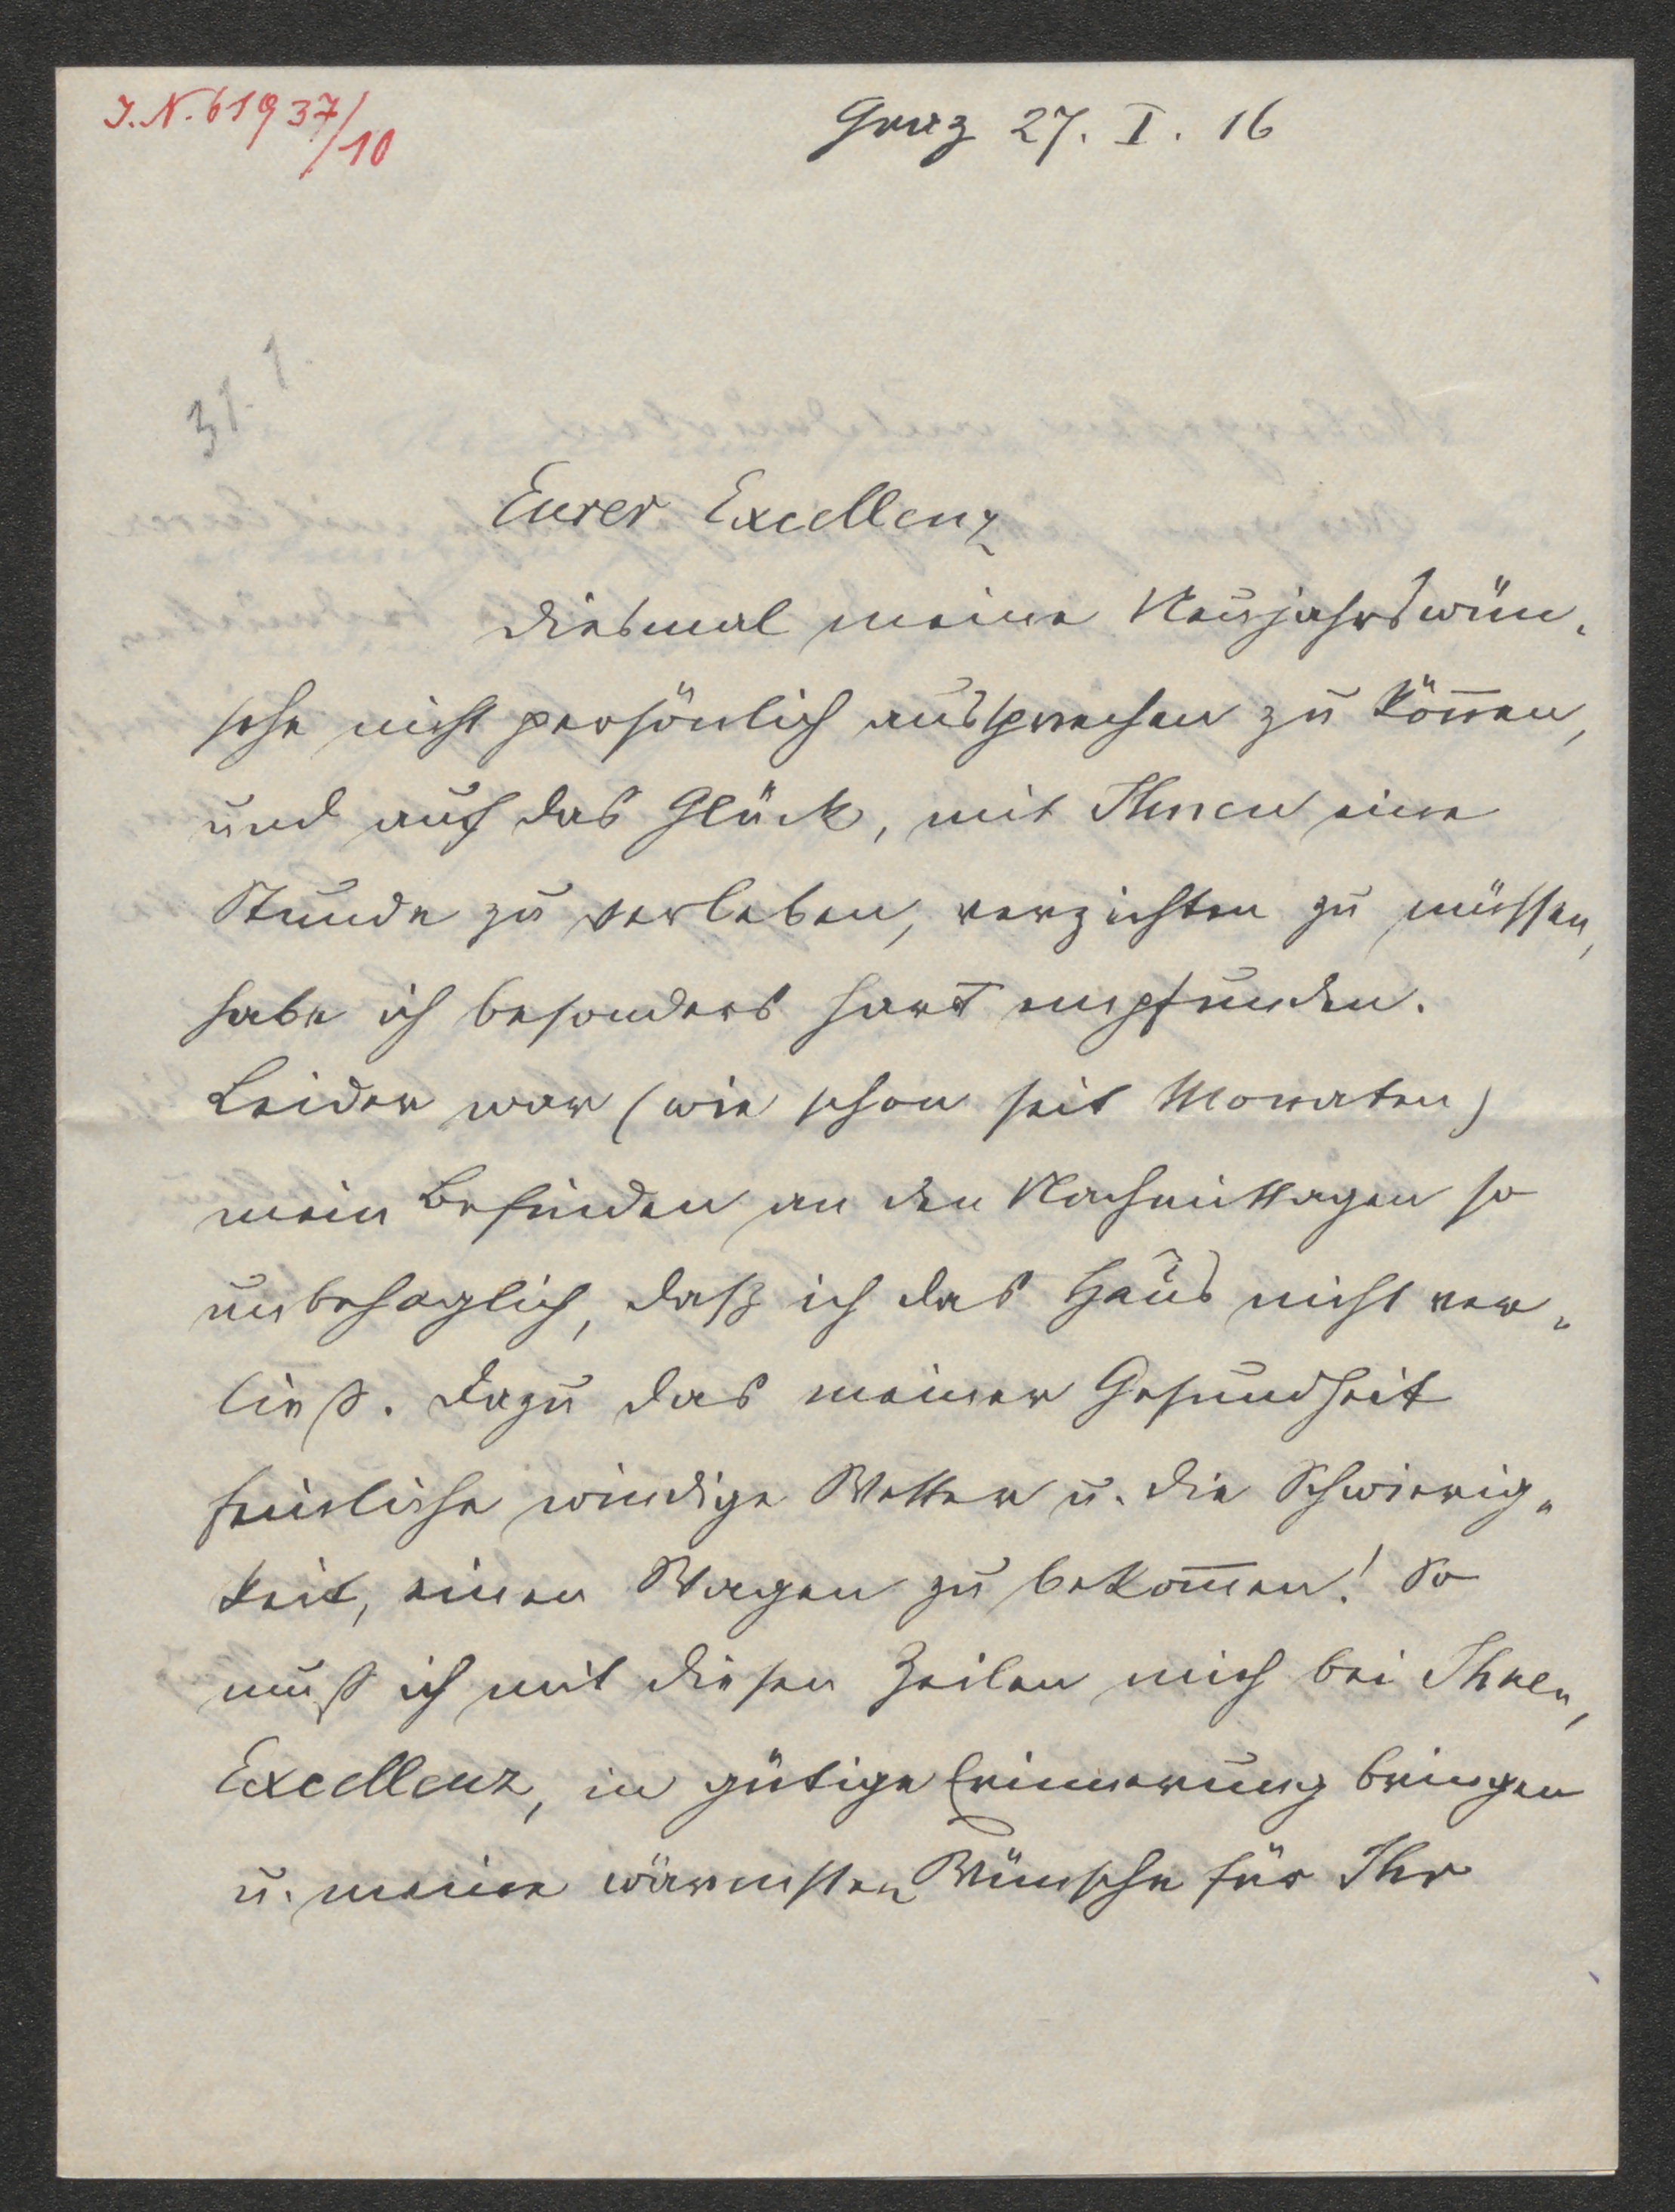 J. N. 61937/10
Graz 27. I. 16
31. 1.
Eurer Excellenz
diesmal meine Neujahrswün-
sche nicht persönlich aussprechen zu kön̄en,
und auf das Glück, mit Ihnen eine
Stunde zu verleben, verzichten zu müssen,
habe ich besonders hart empfunden.
Leider war (wie schon seit Monaten)
mein Befinden an den Nachmittagen so
unbehaglich, daß ich das Haus nicht ver-
ließ. Dazu das meiner Gesundheit
feindliche windige Wetter u. die Schwierig-
keit, einen Wagen zu bekom̄en! So
muß ich mit diesen Zeilen mich bei Ihnen,
Excellenz, in gütige Erinnerung bringen
u. meine wärmsten Wünsche für Ihr